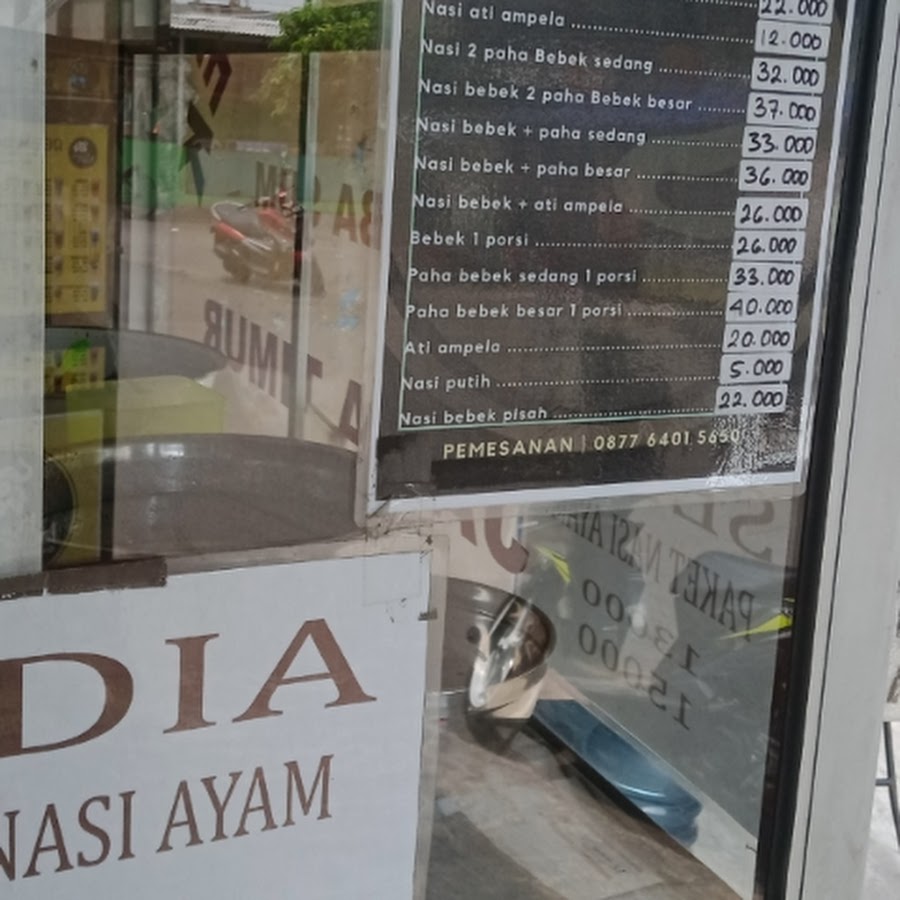 22.000
Nasi ati ampela ........ 12.000
Nasi 2 paha Bebek sedang ........ 32.000
Nasi bebek 2 paha Bebek besar ........ 37.000
Nasi bebek + paha sedang ........ 33.000
Nasi bebek + paha besar ........ 36.000
Nasi bebek + ati ampela ........ 26.000
Bebek 1 porsi ........ 26.000
Paha bebek sedang 1 porsi ........ 33.000
Paha bebek besar 1 porsi ........ 40.000
Ati ampela ........ 20.000
Nasi putih ........ 5.000
Nasi bebek pisah ........ 22.000
PEMESANAN | 0877 6401 5650
DIA
NASI AYAM
TIMUR
PAKET NASI